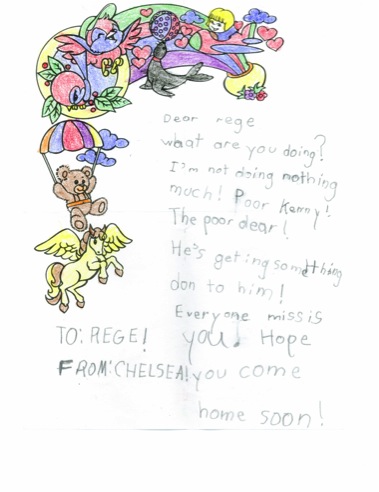 Dear rege
what are you doing?
I'm not doing nothing
much! Poor Kenny!
The poor dear!
He's geting something
don to him!
Everyone missis
you! Hope
you come
home soon!
TO: REGE!
FROM: CHELSEA!